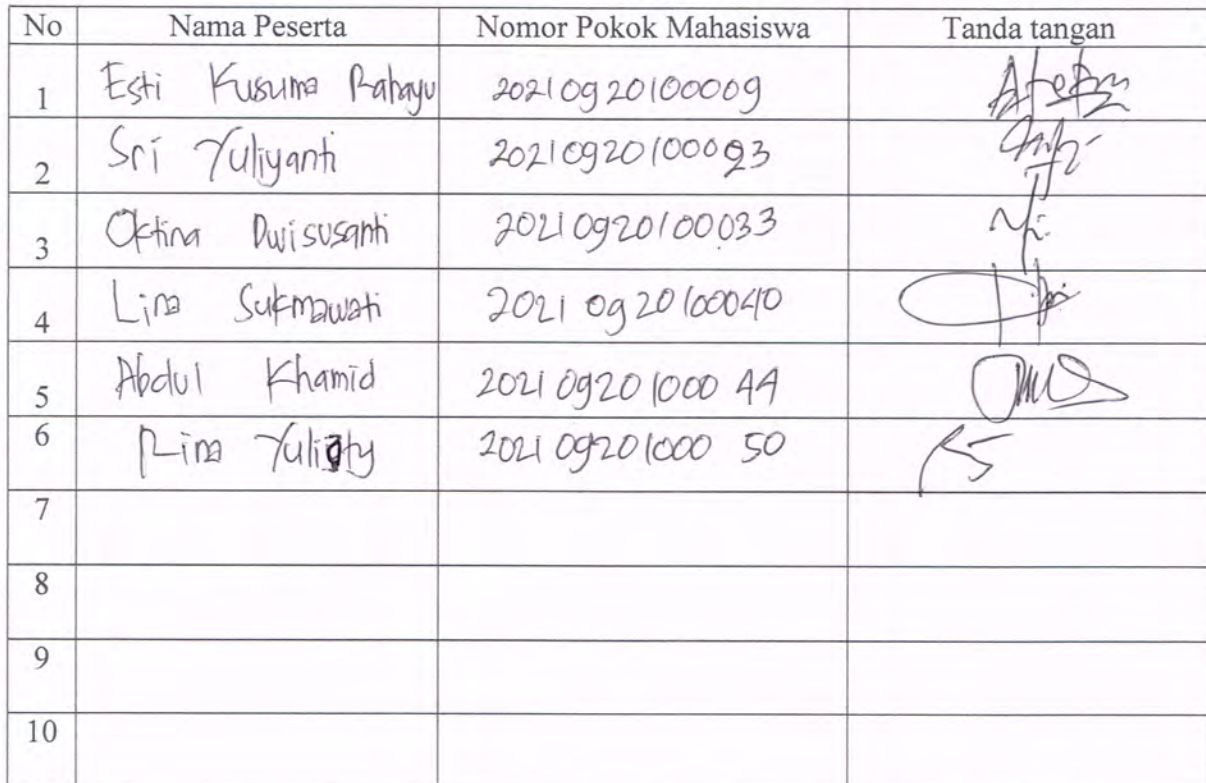 No Nama Peserta Nomor Pokok Mahasiswa Tanda tangan
1 Esti Kusuma Rahayu 20210920100009
2 Sri Yuliyanti 20210920100023
3 Oktina Dwisusanti 20210920100033
4 Lina Sukmawati 20210920100040
5 Abdul Khamid 20210920100044
6 Rina 20210920100050
7
8
9
10